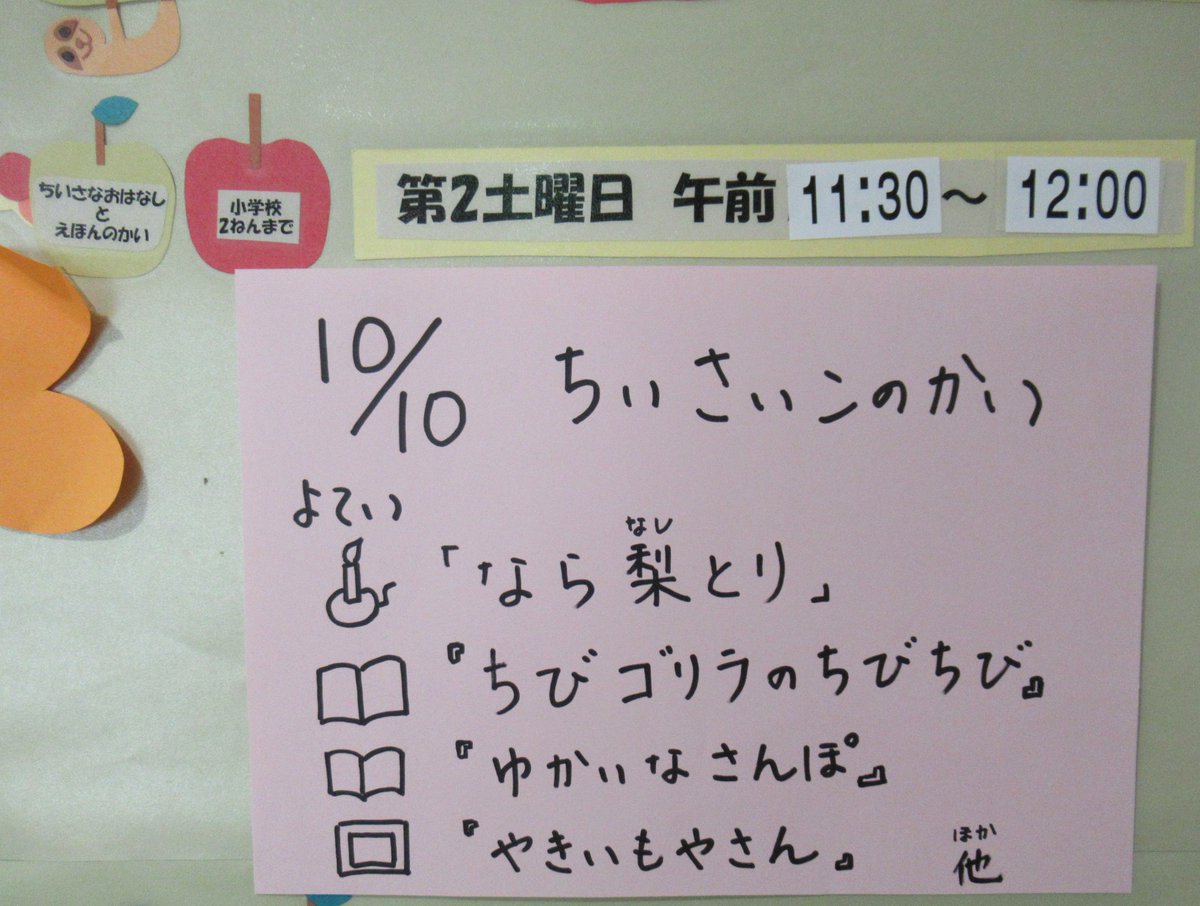 ちいさなおはなし
と
えほんのかい
小学校
2ねんまで
第2土曜日 午前 11:30～ 12:00
10/10 ちいさいこのかい
よてい
「なら梨とり」
なし
『ちびゴリラのちびちび』
『ゆかいなさんぽ』
『やきいもやさん』 他
ほか